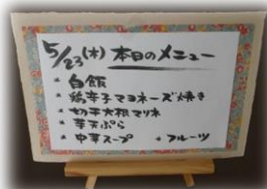 5/23(木) 本日のメニュー
* 白飯
* 鶏辛子マヨネーズ焼き
* 切干大根マリネ
* 芋天ぷら
* 中華スープ * フルーツ